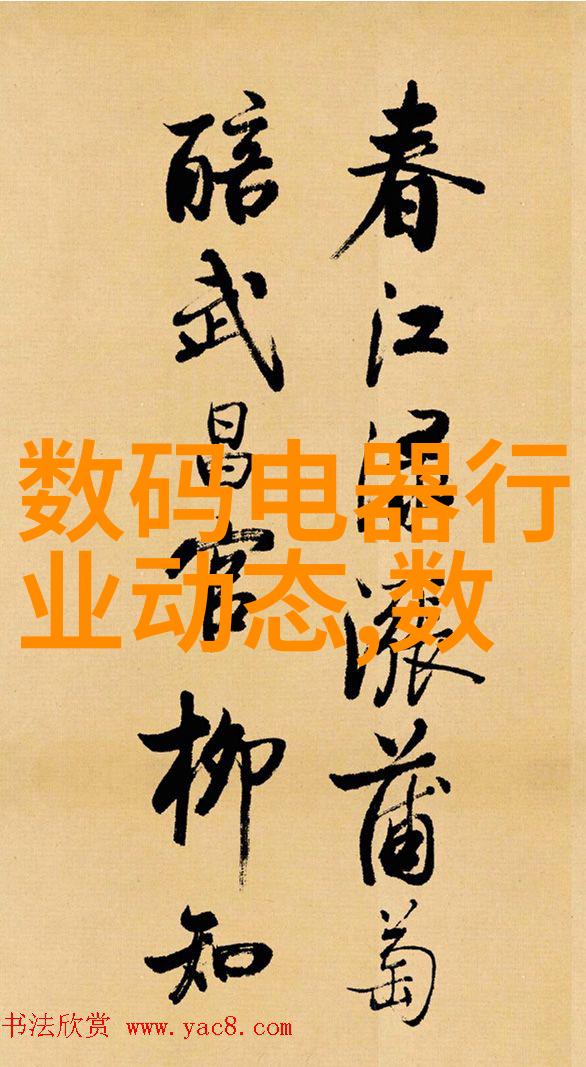 春江淥漲蒲萄
醅武昌官柳知
数码电器行
业动态,数
书法欣赏 www.yac8.com